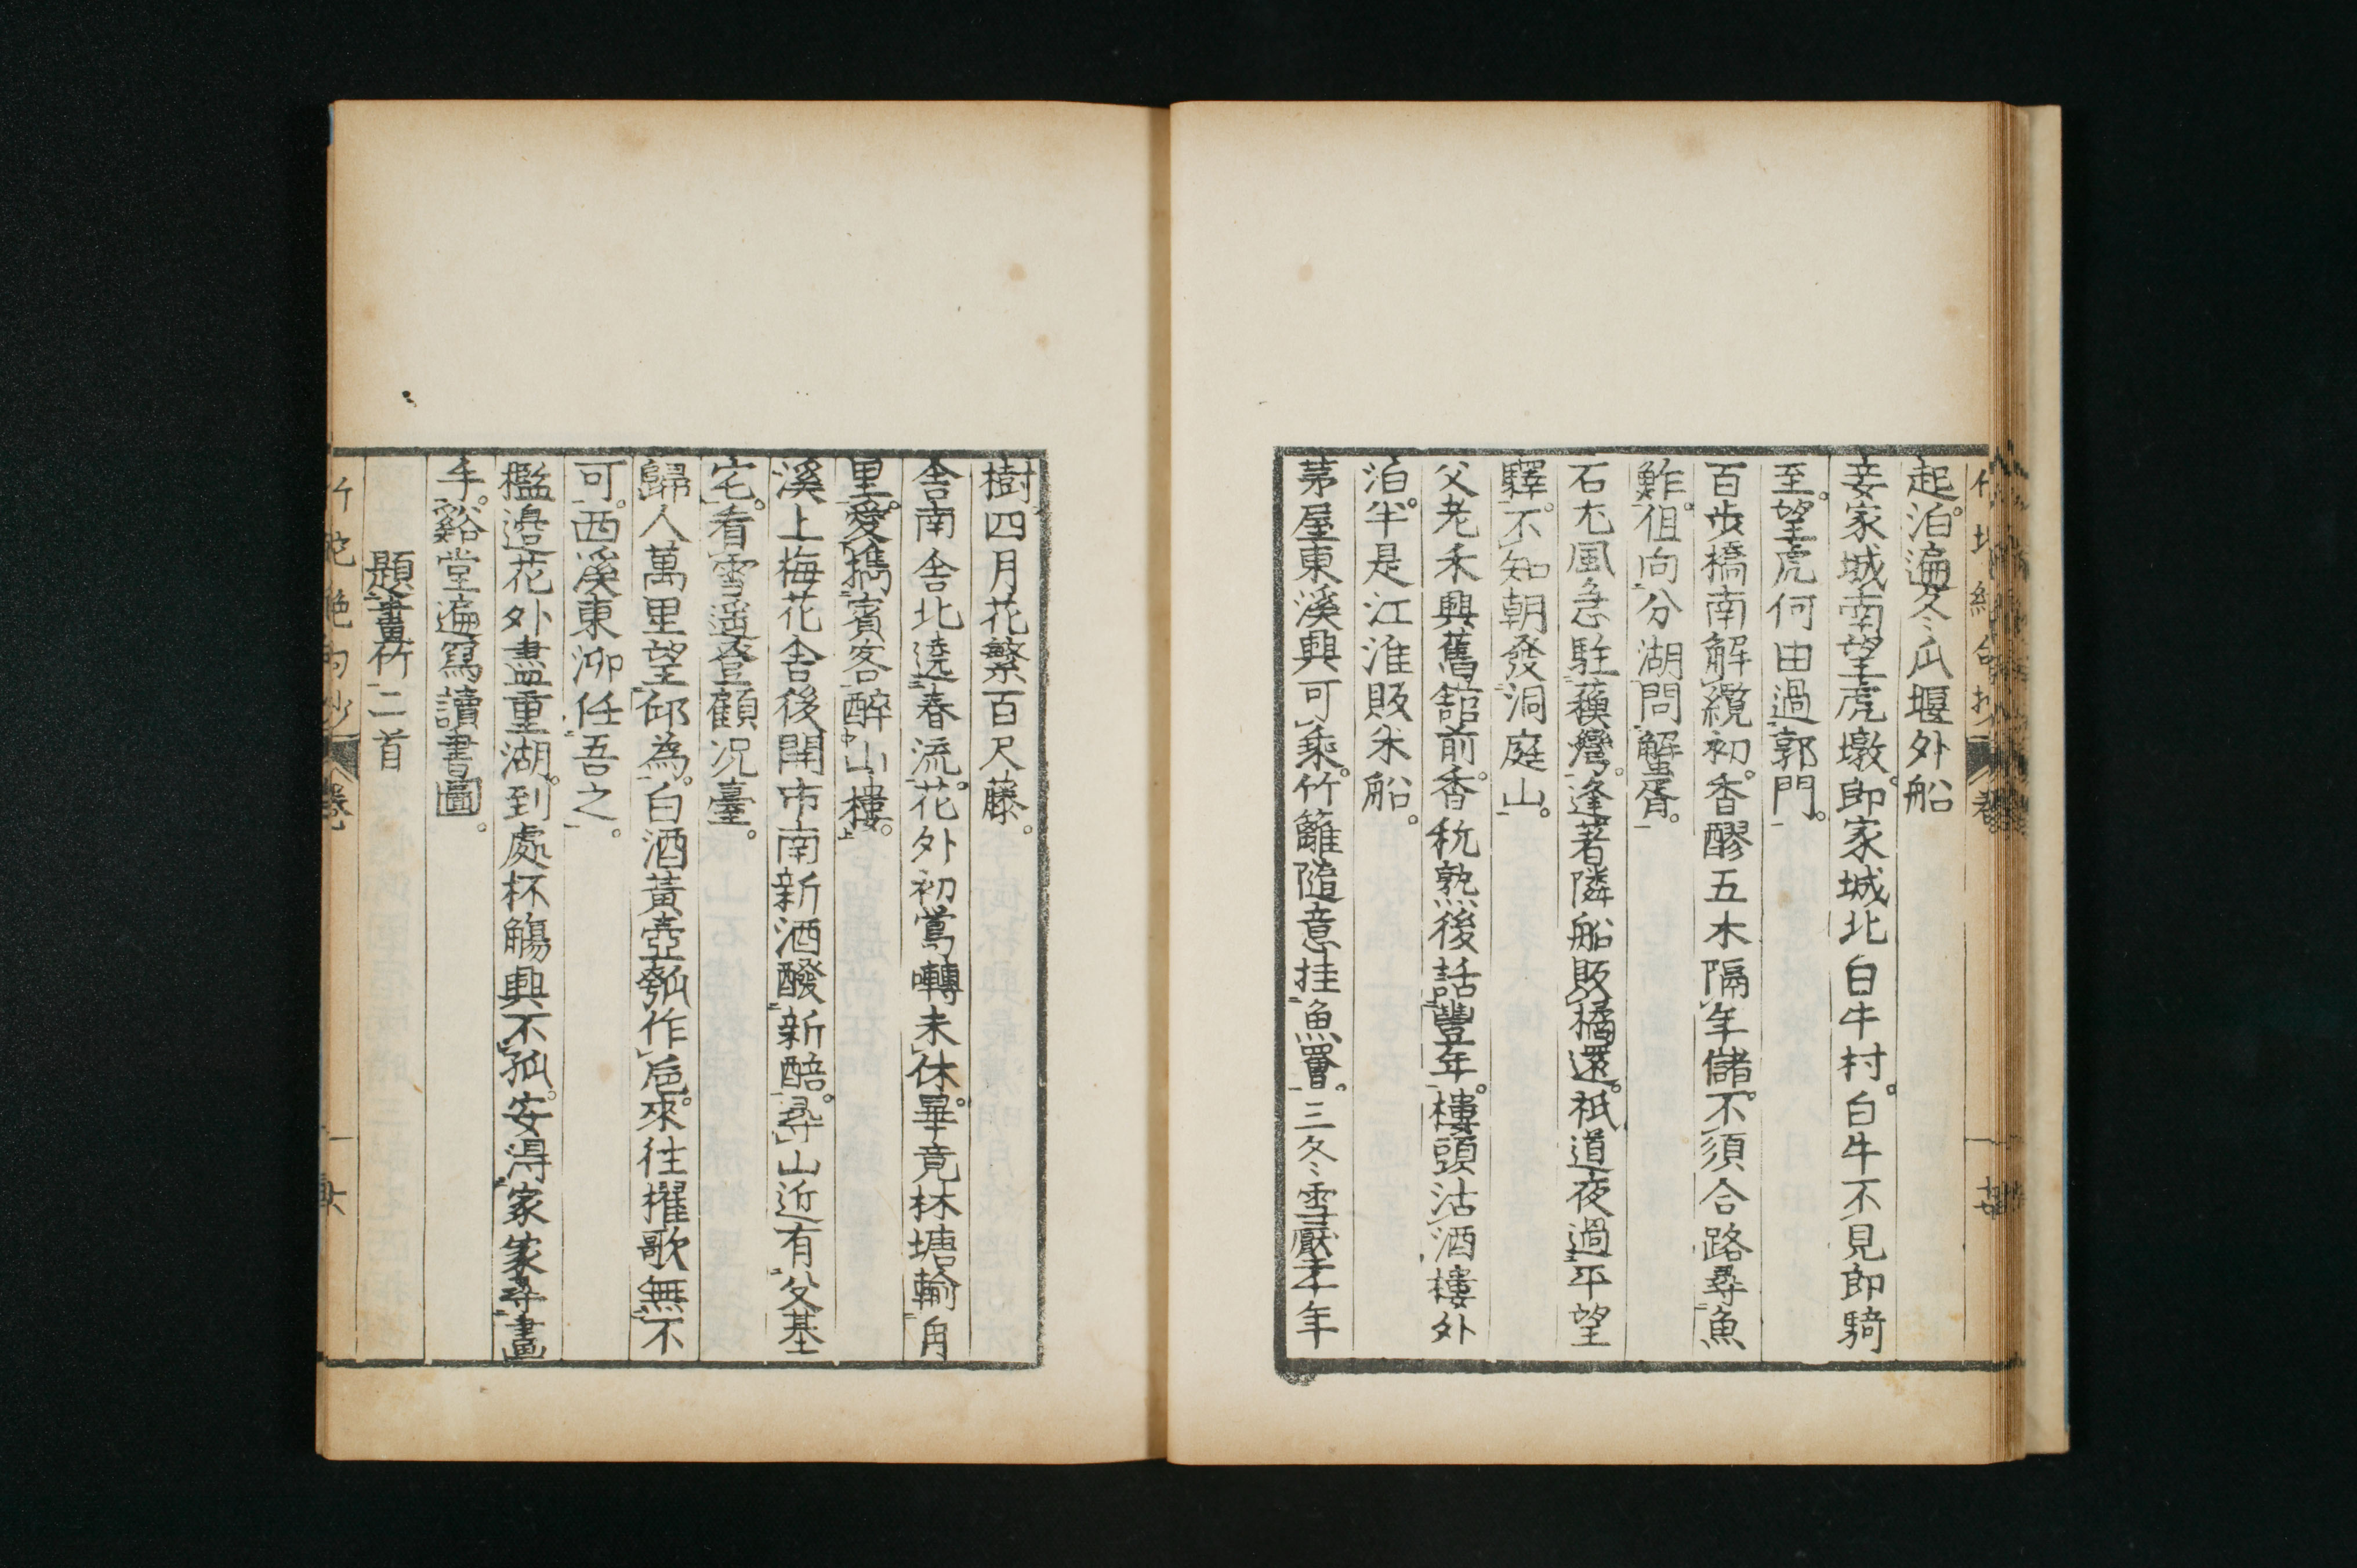 起泊遍冬瓜堰外船
妾家城南望虎墩郎家城北白牛村白牛不見郎騎
至望虎何由過郭門
百步橋南解纜初香醪五木隔年儲不須合路尋魚
鮓但向分湖問蟹胥
石尤風急駐蘓灣逢著隣船販橘還祇道夜過平望
驛不知朝發洞庭山
父老禾興舊舘前香秔熟後話豐年樓頭沽酒樓外
泊半是江淮販米船
茅屋東溪興可乘竹籬隨意挂魚罾三冬雪壓千年
樹四月花繁百尺藤
舍南舍北遶春流花外初鶯囀未休畢竟林塘輸角
里愛攜賓客醉山樓
溪上梅花舍後開市南新酒醱新醅尋山近有父基
宅看雪遥登顧况臺
歸人萬里望邱為白酒黃壺瓠作巵來往櫂歌無不
可西溪東泖任吾之
檻邉花外盡重湖到處杯觴興不孤安得家家尋畫
手谿堂遍寫讀書圖
題畫竹二首
竹垞絶句抄 卷